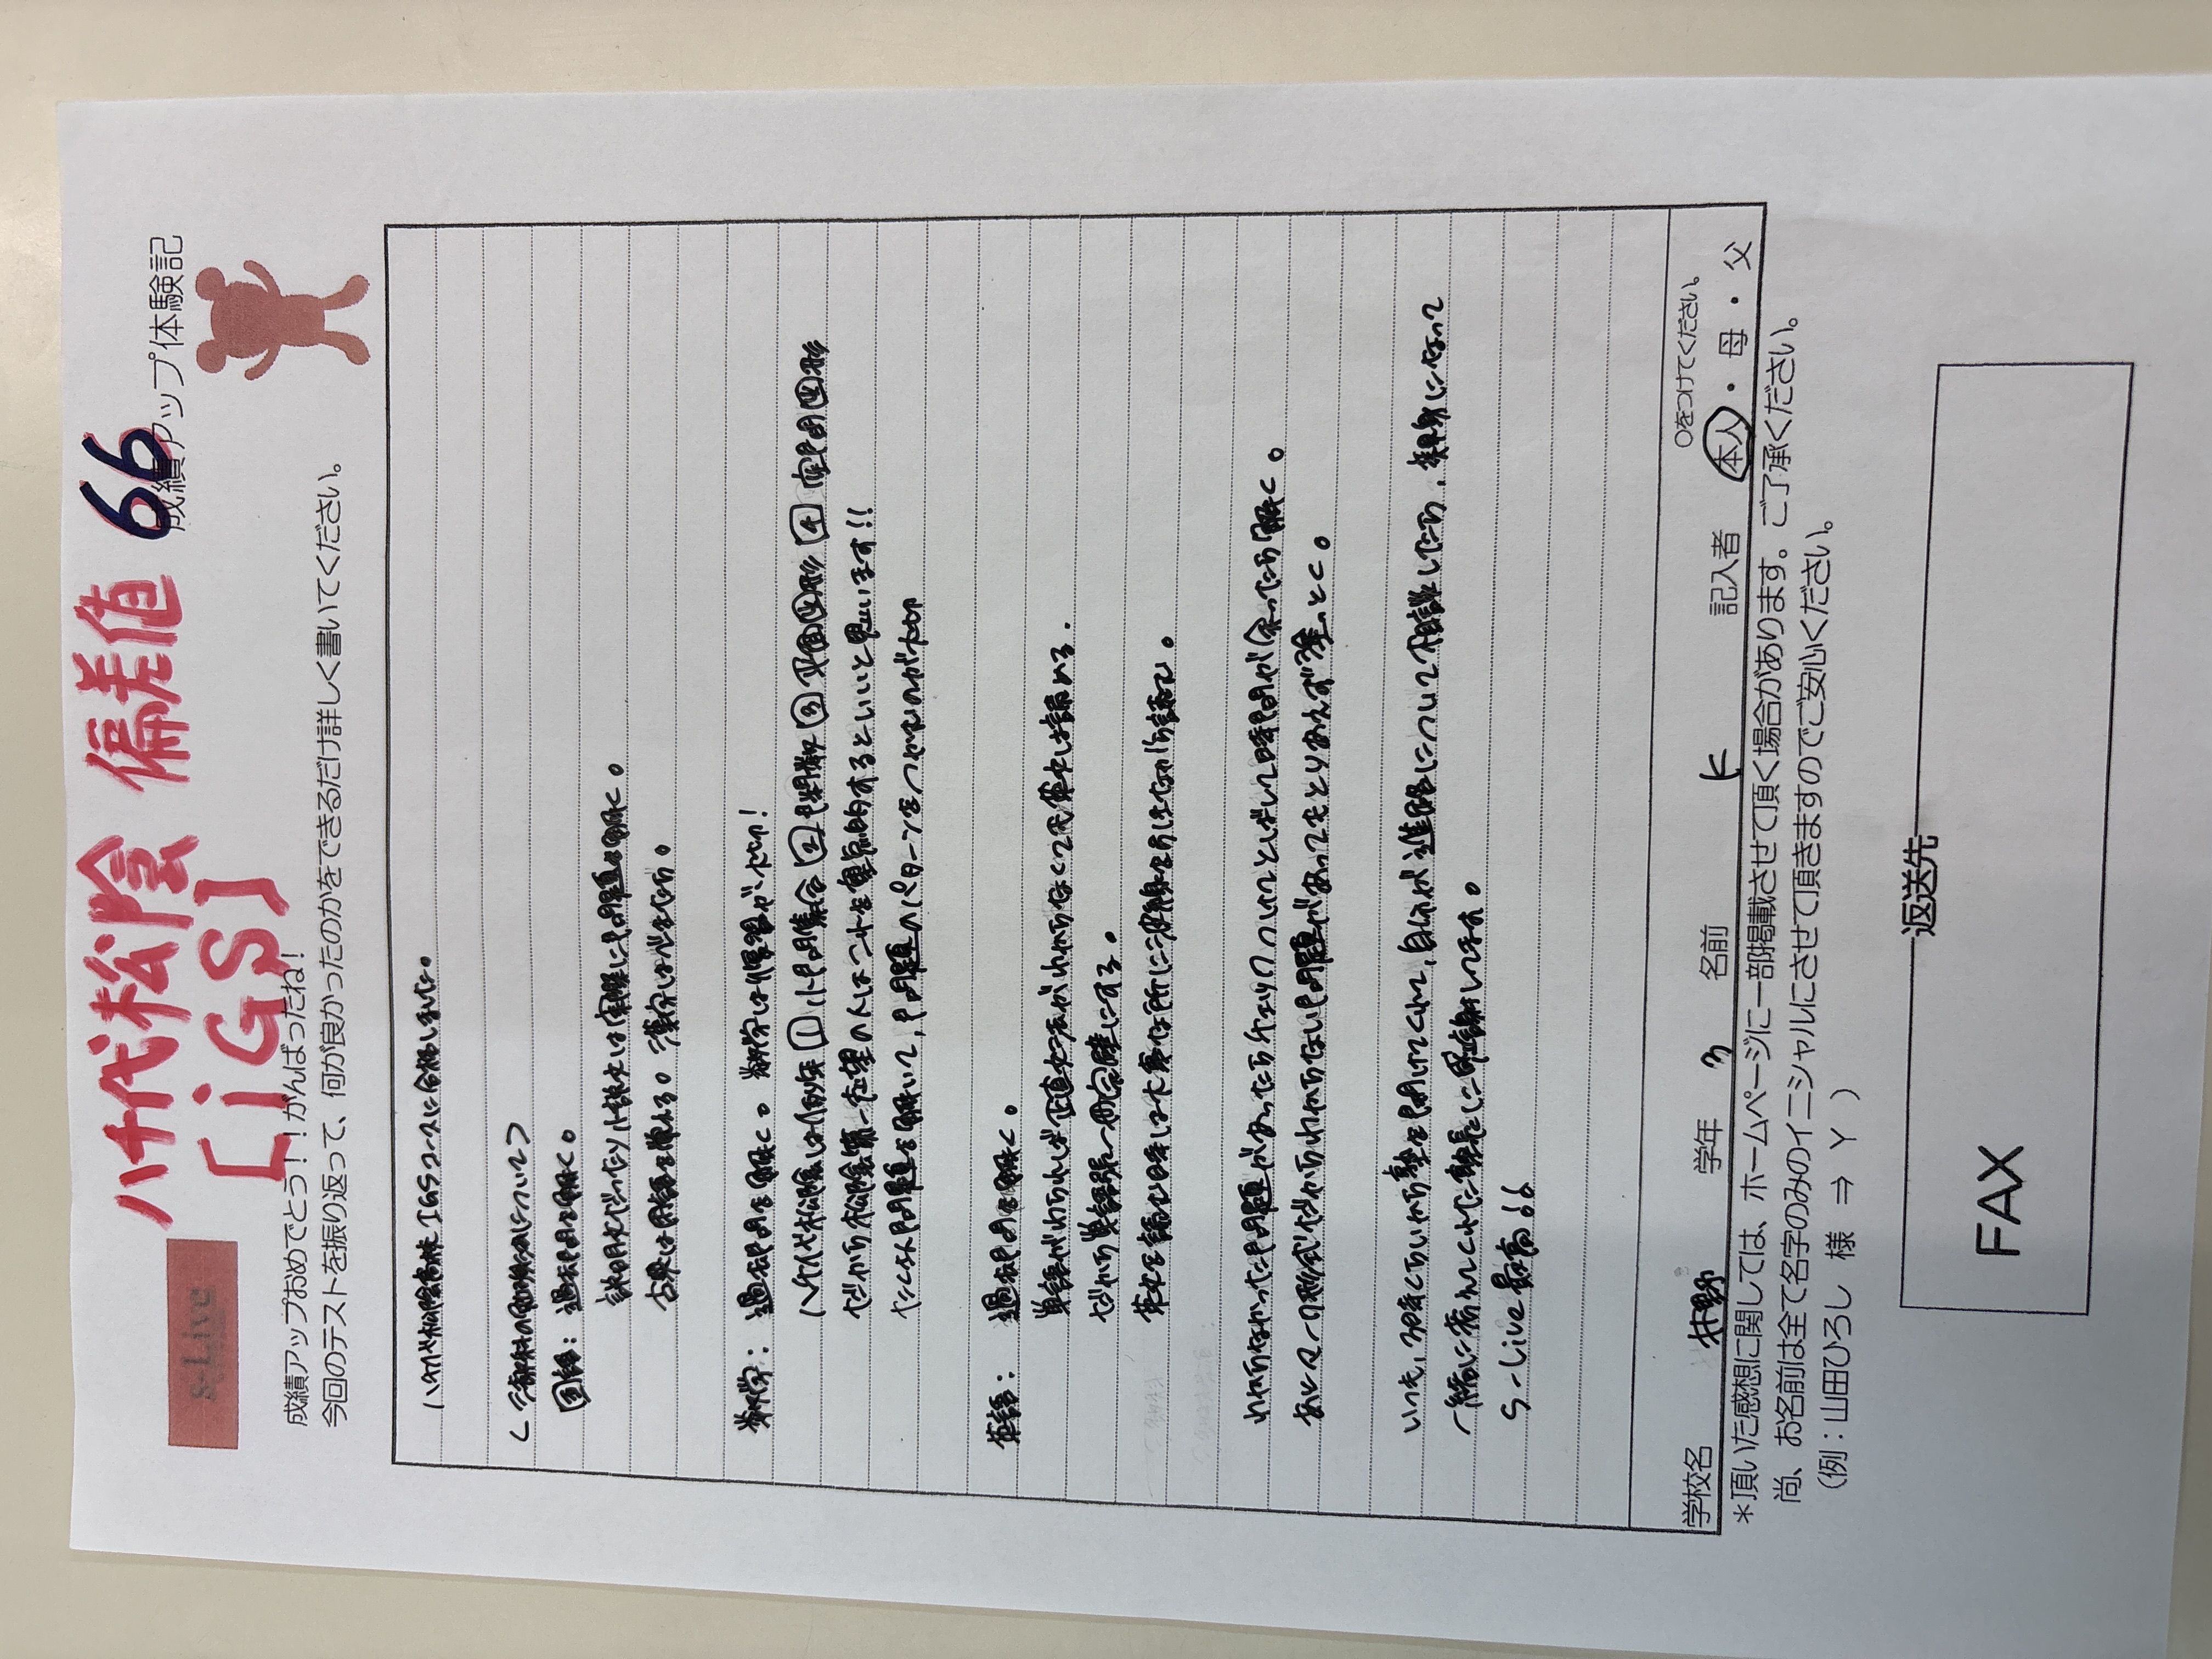 八千代松陰 偏差値 66
[iGS]
S-Live
成績アップ体験記
成績アップおめでとう!!がんばったね!
今回のテストを振り返って、何が良かったのかをできるだけ詳しく書いてください。
八千代松陰高校IGSコースに合格しました。
<三教科の勉強法について>
国語:過去問を解く。
説明文だったり小説文は実際に問題を解く。
古典は用語を覚える。漢字は必ずやる。
数学:過去問を解く。数学は慣習が大切!
八千代松陰は例年①小問集合②関数③平面図形④空間図形
だから松陰第一志望の人はこれを重点的するといいと思います!!
たくさん問題を解いて,問題のパターンをつかむのが大切
英語:過去問を解く。
単語がわかれば正直文法がわからなくても英文は読める.
だから単語を一番完璧にする。
英文を読む時は大事な所に波線を引きながら読む。
わからなかった問題があったらチェックつけてとばして時間が余ったら解く。
あとマーク形式だからわからない問題があってもとりあえず塗っとく。
いつも,30分くらい前から塾を開けてくれて,自分が進路について相談したら,親身になって
一緒に悩んでくれた塾長に感謝してます。
S-Live最高!!
〇をつけてください。
学校名 村野 学年 3 名前 K 記入者 本人・母・父
*頂いた感想に関しては、ホームページに一部掲載させて頂く場合があります。ご了承ください。
尚、お名前は全て名字のみのイニシャルにさせて頂きますのでご安心ください。
(例:山田ひろし 様 ⇒ Y )
返送先
FAX